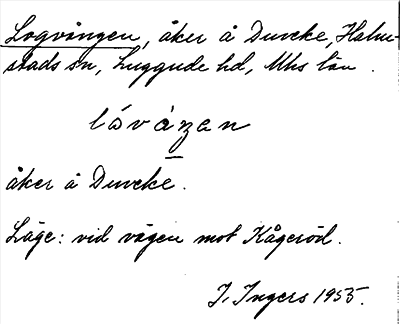 Logvången, åker å Duveke, Halm-
stads sn, Luggude hd, Mhs län.
låvåzen
åker å Duveke.
Läge: vid vägen mot Kågeröd.
I. Ingers 1955.